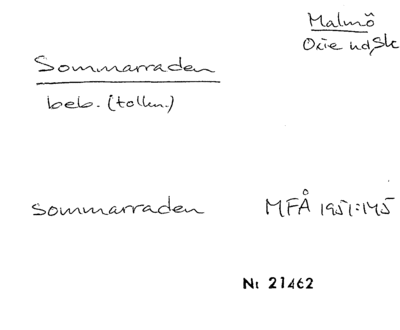 Malmö
Oxie hd, Sk
Sommarraden
beb. (tolkn.)
sommarraden MFÅ 1951:145
Nr 21462